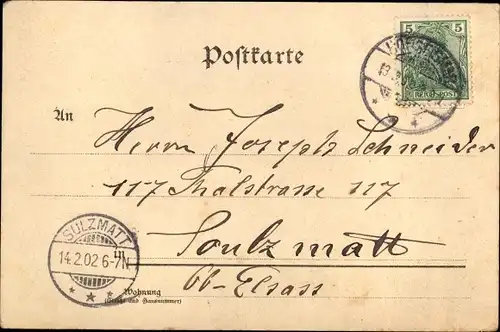 5 5
REICHSPOST
13.
Postkarte
An
Herrn Joseph Schneider
117 Thalstrasse 117
Soulzmatt
Ob-Elsass
SULZMATT
14.2.02 6-7N
Wohnung
(Straße und Hausnummer)